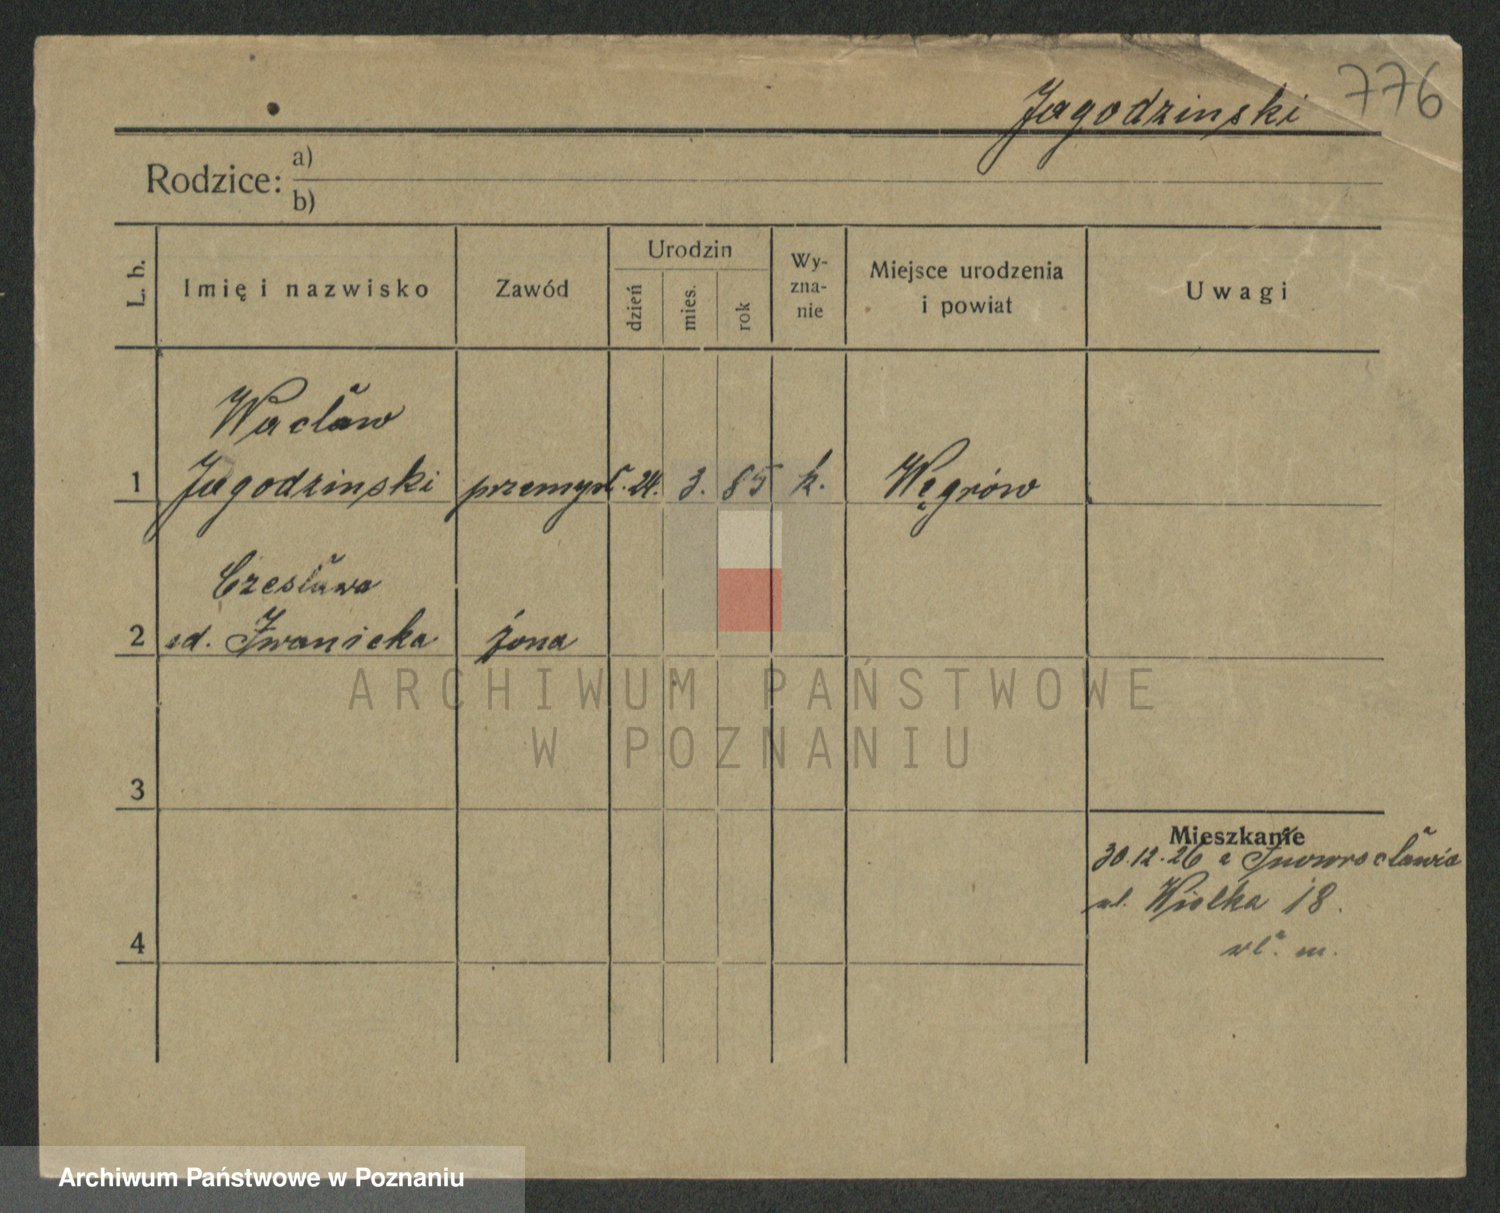 776
Jagodzinski
Rodzice: a)
b)
L. b.
Imię i nazwisko
Zawód
Urodzin
dzień
mies.
rok
Wy-
zna-
nie
Miejsce urodzenia
i powiat
Uwagi
Wacław
1 Jagodzinski przemysł. 24. 3. 85 k. Węgrów
Czesława
2 sd. Iwanicka żona
3
Mieszkanie
30.12.26 z Inowrocławia
ul. Wielka 18.
wł. m.
4
ARCHIWUM PAŃSTWOWE
W POZNANIU
Archiwum Państwowe w Poznaniu